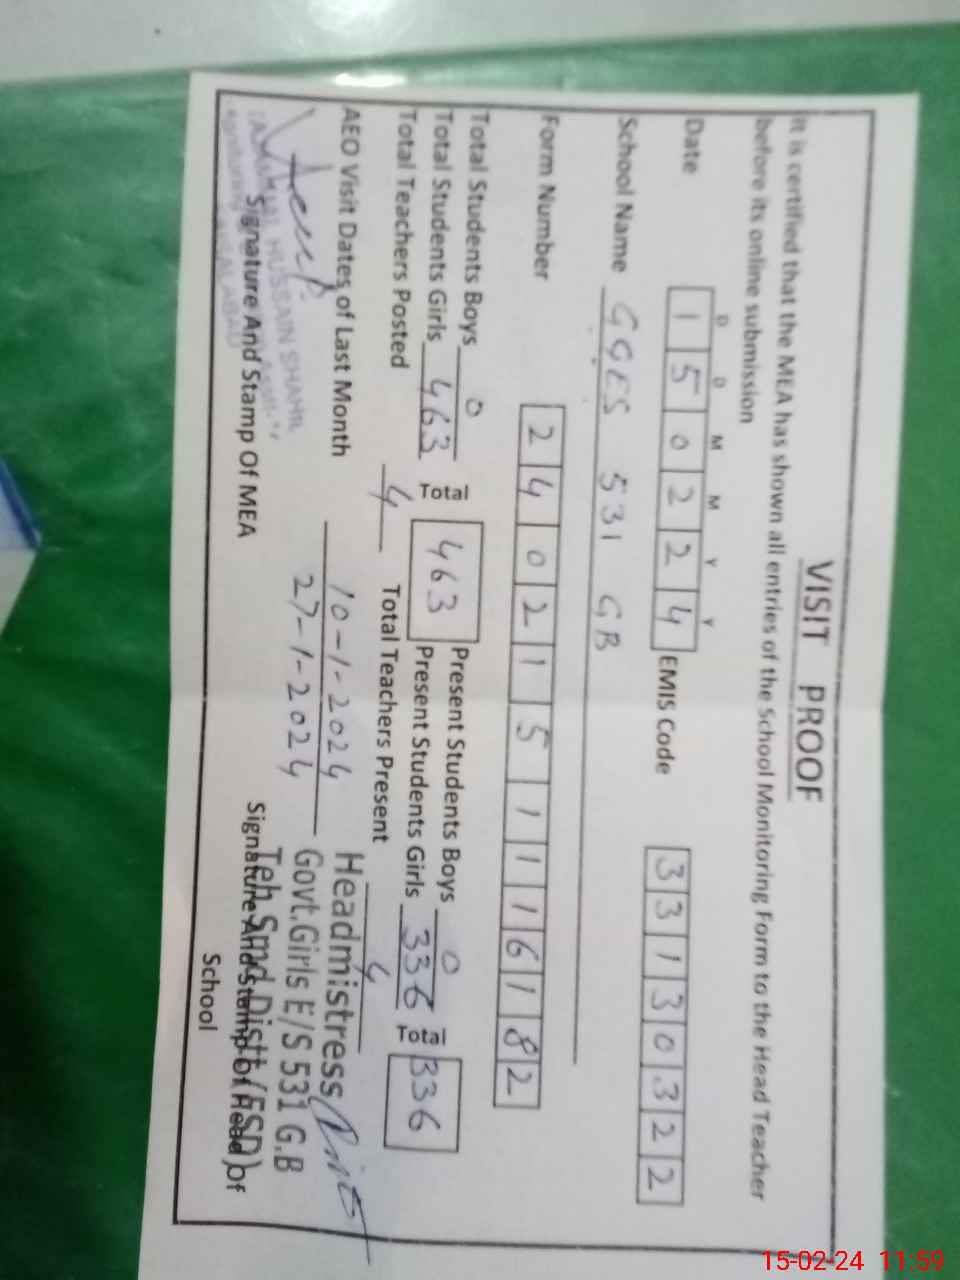 VISIT PROOF
It is certified that the MEA has shown all entries of the School Monitoring Form to the Head Teacher
before its online submission
D D M M Y Y
Date 1 5 0 2 2 4 EMIS Code 3 3 1 3 0 3 2 2
School Name GGES 531 GB
Form Number 2 4 0 2 1 5 1 1 1 6 1 8 2
Total Students Boys 0 Total 463 Present Students Boys 0 Total 336
Total Students Girls 463 Present Students Girls 336
Total Teachers Posted 4 Total Teachers Present 4
AEO Visit Dates of Last Month 10-1-2024
27-1-2024
Headmistress
Govt.Girls E/S 531 G.B
Teh Smd Distt (FSD)
HUSSAIN SHAHI
Signature And Stamp Of MEA
Signature And Stamp Of Head Of
School
15-02-24 11:59